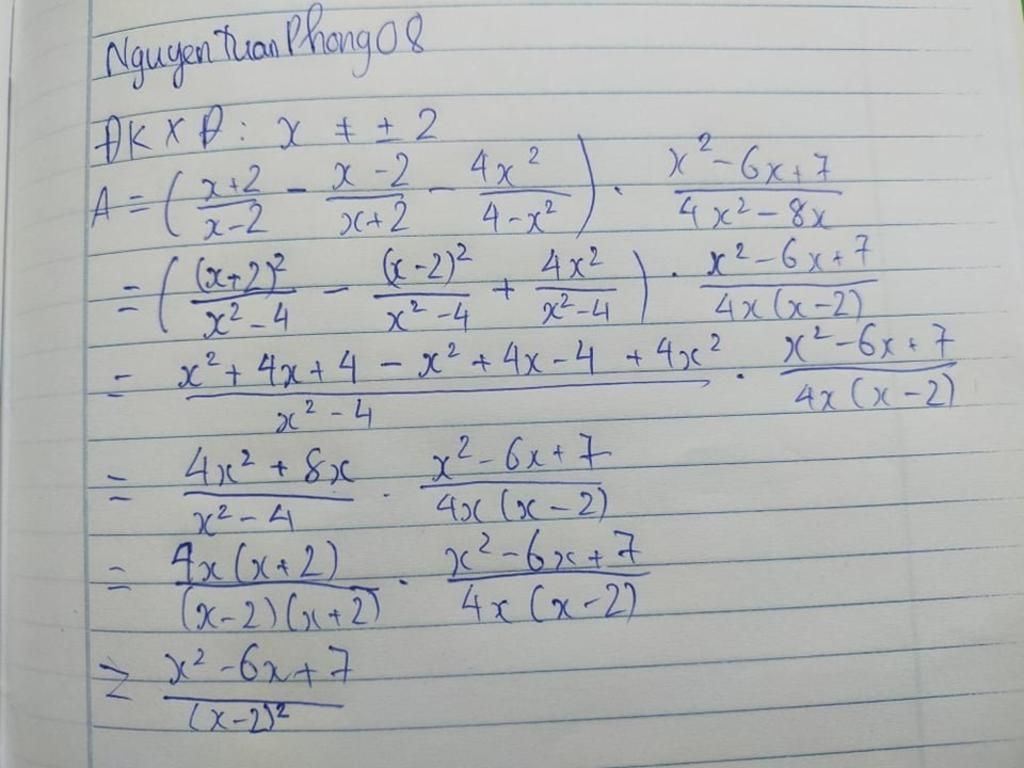 NguyenTuanPhong08
ĐKXĐ: x ≠ ± 2
A = ( (x+2)/(x-2) - (x-2)/(x+2) - 4x²/(4-x²) ) . (x²-6x+7)/(4x²-8x)
= ( (x+2)²/(x²-4) - (x-2)²/(x²-4) + 4x²/(x²-4) ) . (x²-6x+7)/(4x(x-2))
= (x²+4x+4-x²+4x-4+4x²)/(x²-4) . (x²-6x+7)/(4x(x-2))
= (4x²+8x)/(x²-4) . (x²-6x+7)/(4x(x-2))
= 4x(x+2)/((x-2)(x+2)) . (x²-6x+7)/(4x(x-2))
= (x²-6x+7)/(x-2)²